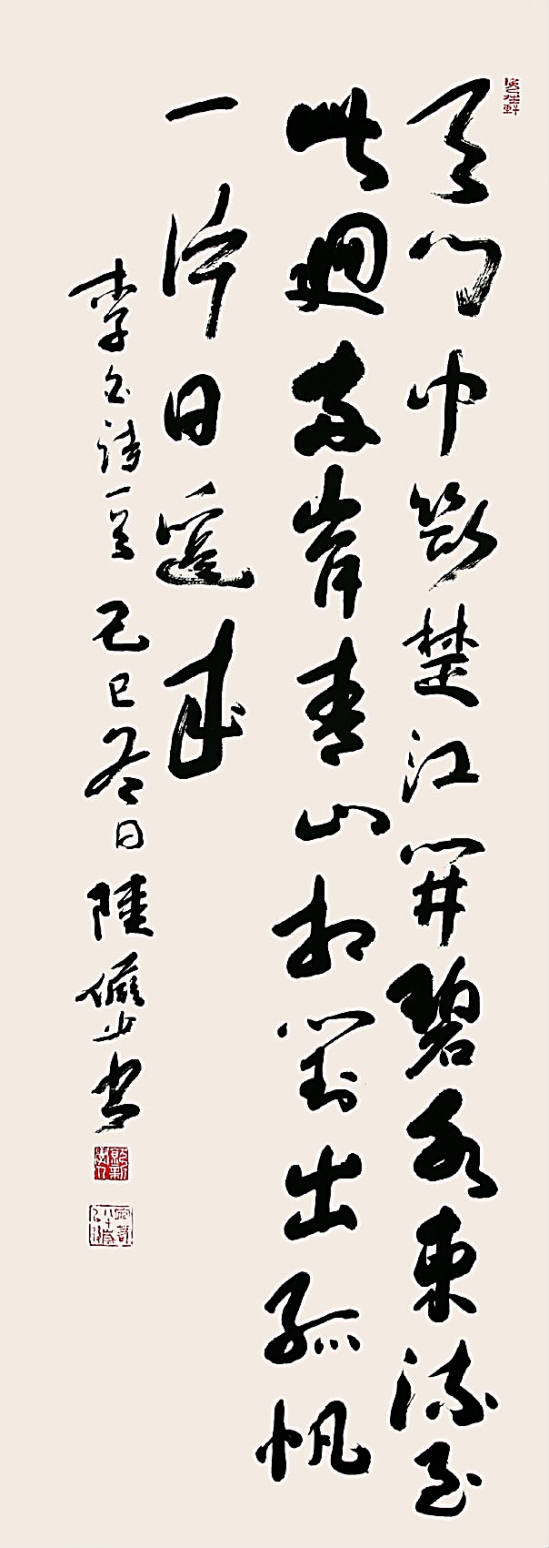 天门中断楚江开碧水东流至
此迴两岸青山相对出孤帆
一片日边来
李白诗一首 己巳冬日 陸儼少书